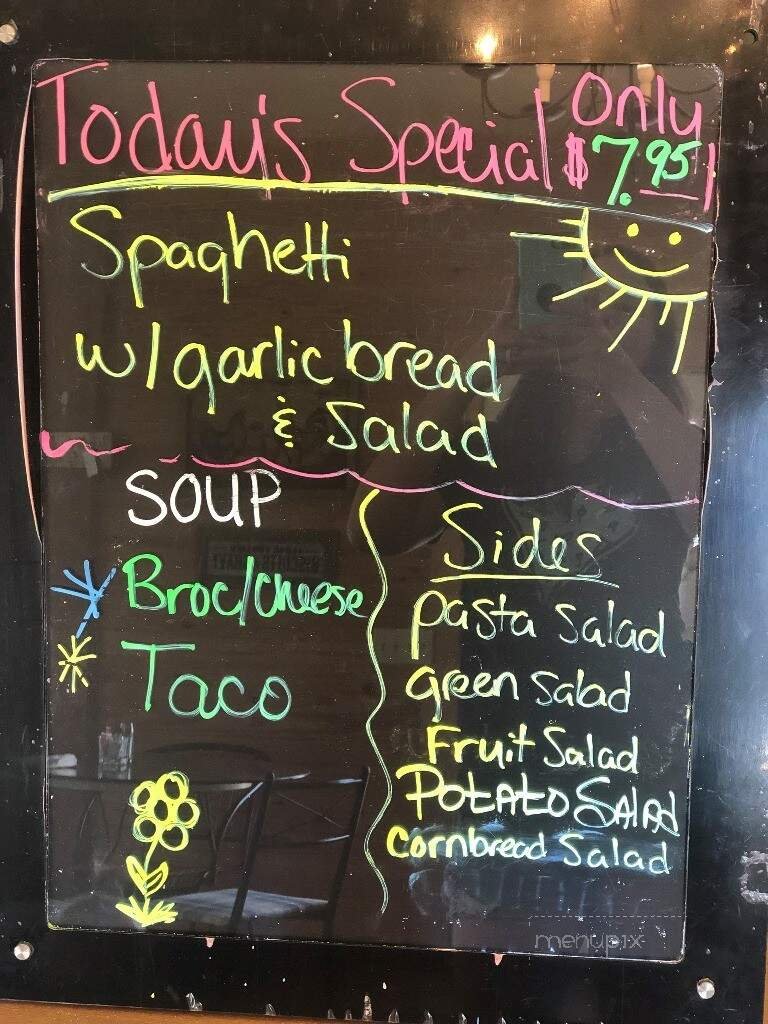 Today's Special Only
$7.95
Spaghetti
w/garlic bread
& Salad
SOUP
Broc/cheese
Taco
Sides
pasta salad
green salad
Fruit Salad
Potato Salad
Cornbread Salad
menupix